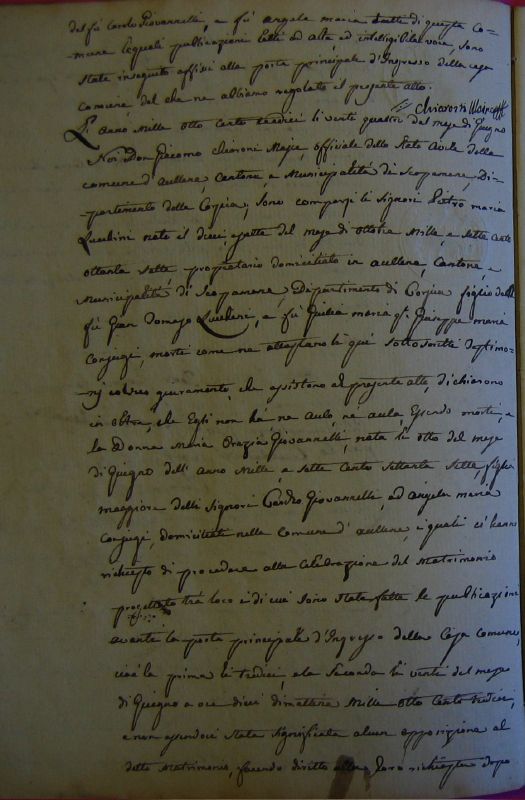 del fù Carlo Giovannelli, e fù angela maria Tutti di questa Co-
mune lequali publicazioni lette ad alta ed inteligibile voce, sono
state inseguito affisse alla porta principale d'Ingresso della casa
Comune, del che ne abbiamo regolato il presente atto.
L'anno Mille otto Cento tredici li venti quattro del mese di Giugno
Noi Don Giacomo Chiaroni Maire, officiale dello Stato Civile della
comune d'aullene, Cantone, e Municipalità di Scopamene, Di-
partimento della Corsica, sono comparsi li Signori Pietro maria
Lucchini nato il dieci sette del mese di ottobre Mille, e sette Cento
ottanta sette proprietario domiciliato in aullene, Cantone, e
Municipalità di Scopamene, Dipartimento di Corsica figlio delli
fù Gian Domego Lucchini, e fù Giulia maria Giuseppe maria
Conjugi, morti come ne attestano li qui sotto scritti Testimo-
nj col loro giuramento, che assistono al presente atto, dichiarono
in oltre, che Egli non ha ne avolo, ne avola, Essendo morti, e
la Donna Maria Orazia Giovannelli, nata li otto del mese
di Giugno dell'Anno Mille, e sette Cento settanta sette, figlia
maggiore delli Signori Giovannelli, ed angela maria
Conjugi, domiciliati nella Comune d'aullene, i quali ci hanno
richiesto di procedere alla Celebrazione del Matrimonio
progettato trà loro e di cui sono state fatte le publicazione
avante la porta principale d'Ingresso della Casa comune,
cioè la prima li tredici, e la Seconda li venti del mese
di Giugno a ore dieci di mattina Mille otto Cento tredici,
e non essendoci stata significata alcun opposizione al
detto Matrimonio, facendo diritto alla loro richiesta dopo